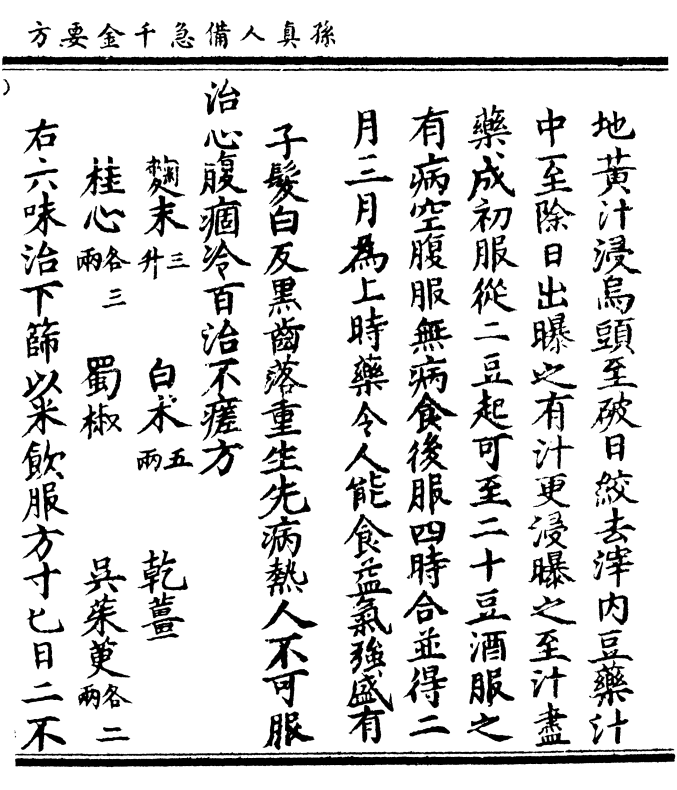 孫真人備急千金要方
地黃汁浸烏頭至破日絞去滓內豆藥汁
中至除日出曝之有汁更浸曝之至汁盡
藥成初服從二豆起可至二十豆酒服之
有病空腹服無病食後服四時合並得二
月三月為上時藥令人能食益氣強盛有
子髮白反黑齒落重生先病熱人不可服
治心腹痼冷百治不瘥方
麴末三升 白朮五兩 乾薑
桂心各三兩 蜀椒 吳茱萸各二兩
右六味治下篩以米飲服方寸匕日二不